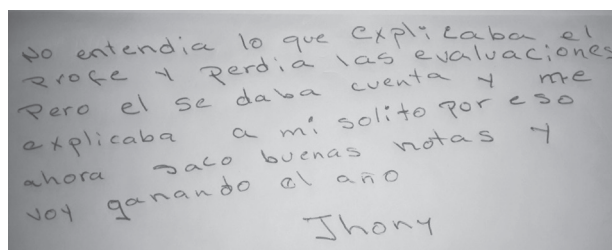 No entendia lo que explicaba el
Profe y Perdia las evaluaciones
Pero el se daba cuenta y me
explicaba a mi solito por eso
ahora saco buenas notas y
voy ganando el año
Jhony